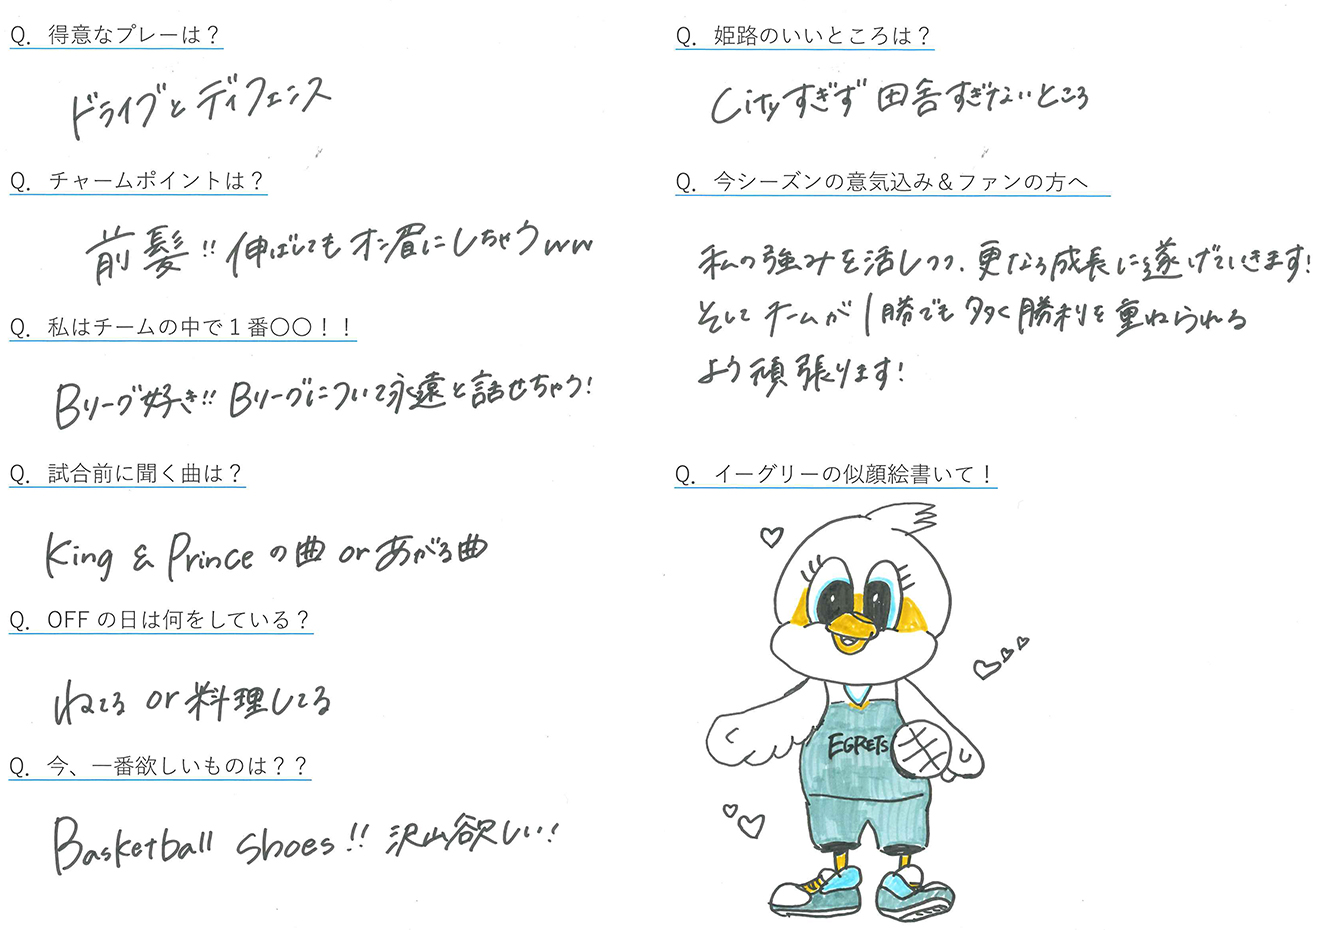 Q. 得意なプレーは？
ドライブとディフェンス
Q. チャームポイントは？
前髪!! 伸ばしてもオン眉にしちゃうww
Q. 私はチームの中で１番〇〇！！
Bリーグ好き!! Bリーグについて永遠と話せちゃう!
Q. 試合前に聞く曲は？
King & Princeの曲 or あがる曲
Q. OFFの日は何をしている？
ねてる or 料理してる
Q. 今、一番欲しいものは？？
Basketball shoes!! 沢山欲しい!
Q. 姫路のいいところは？
Cityすぎず 田舎すぎないところ
Q. 今シーズンの意気込み＆ファンの方へ
私の強みを活しつつ、更なる成長に遂げていきます!
そしてチームが1勝でも多く勝利を重ねられる
よう頑張ります!
Q. イーグリーの似顔絵書いて！
EGRETS